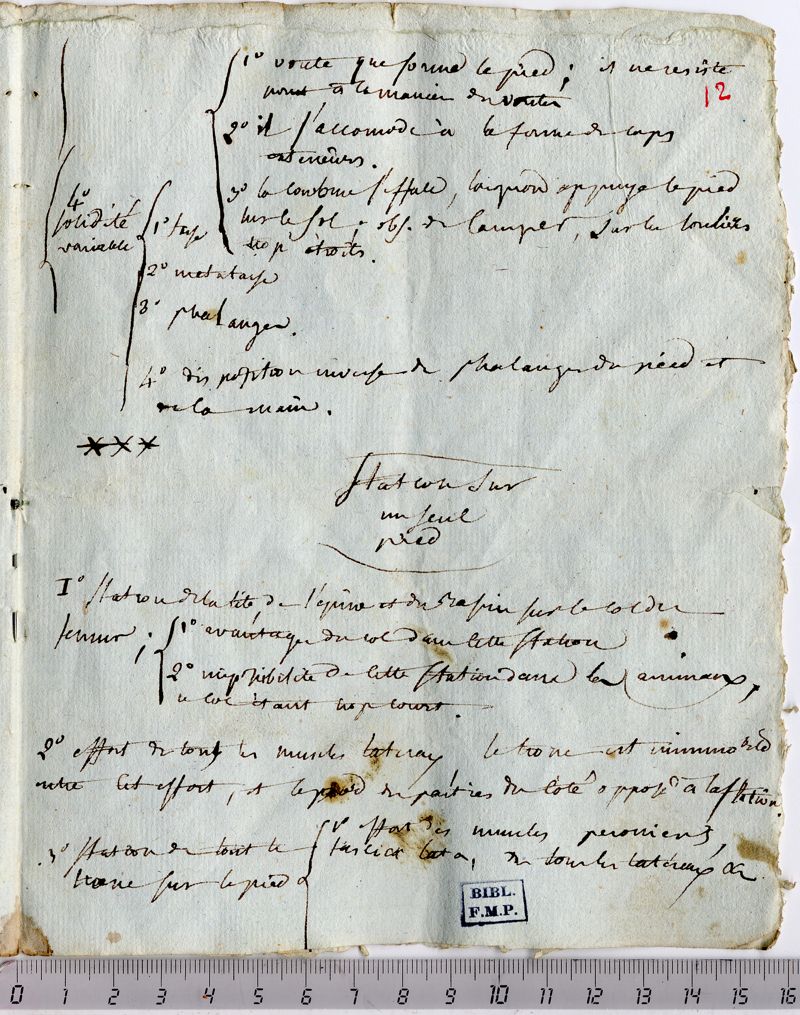 1° voute que forme le pied; il ne resiste
point à la maniere des voutes
12
2° il s'accomode à la forme des corps
exterieurs.
3° la courbure s'efface, lorsqu'on appuye le pied
sur le sol; obs. de Camper, sur les souliers
trop étroits.
4°
solidité
variable
1° tarse
2° metatarse
3° phalanges.
4° disposition inverse des phalanges du pied et
de la main.
Station sur
un seul
pied
I° Station de la tête de l'épine et du Bassin sur le col du
femur;
1° avantage du col dans cette station
2° impossibilité de cette station dans les animaux,
le col étant trop court
2° effort de tous les muscles lateraux le tronc est immobile
entre cet effort, et le poids des parties du coté opposé à la station.
3° station de tout le
tronc sur le pied
1° effort des muscles peroniers,
fascia lata, de tous les lateraux &c
BIBL.
F.M.P.
0 1 2 3 4 5 6 7 8 9 10 11 12 13 14 15 16